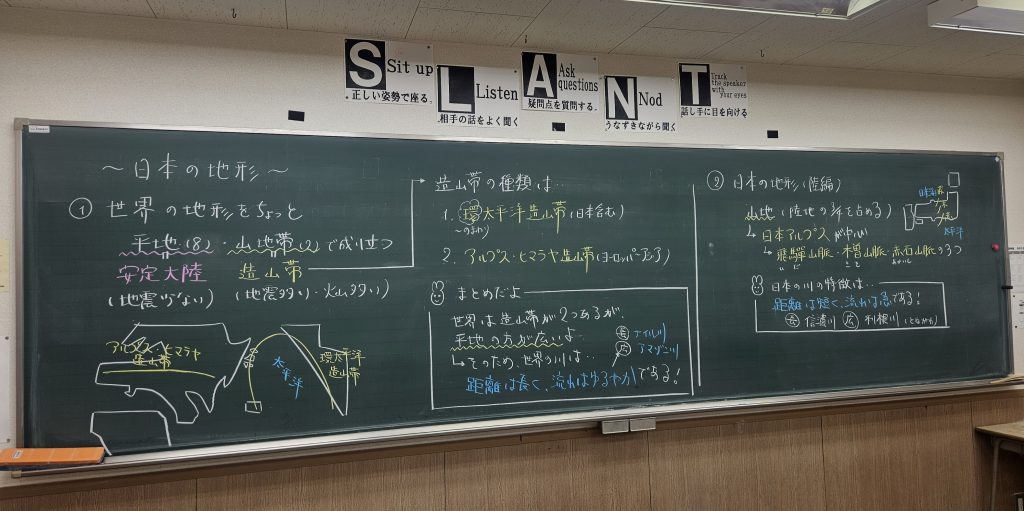 S Sit up
正しい姿勢で座る。
L Listen
相手の話をよく聞く
A Ask questions
疑問点を質問する
N Nod
うなずきながら聞く
T Track the speaker with your eyes
話し手に目を向ける
～日本の地形～
① 世界の地形をちょっと
平地(8)・山地帯(2)で成り立つ
安定大陸 造山帯
(地震少ない) (地震多い・火山多い)
アルプス・ヒマラヤ
造山帯
太平洋
環太平洋
造山帯
造山帯の種類は…
1. 環太平洋造山帯(日本含む)
～のまわり
2. アルプス・ヒマラヤ造山帯(ヨーロッパ～アジア)
まとめだよ
世界は造山帯が2つあるが、
平地の方が広いよ
↳そのため、世界の川は…
長 ナイル川
広 アマゾン川
距離は長く、流れはゆるやかである!
② 日本の地形(陸編)
山地(陸地の3/4を占める)
↳日本アルプスが中心
↳飛驒山脈・木曽山脈・赤石山脈の3つ
ひだ きそ あかいし
日本海
太平洋
日本の川の特徴は…
距離は短く、流れは急である!
長 信濃川 広 利根川(とねがわ)